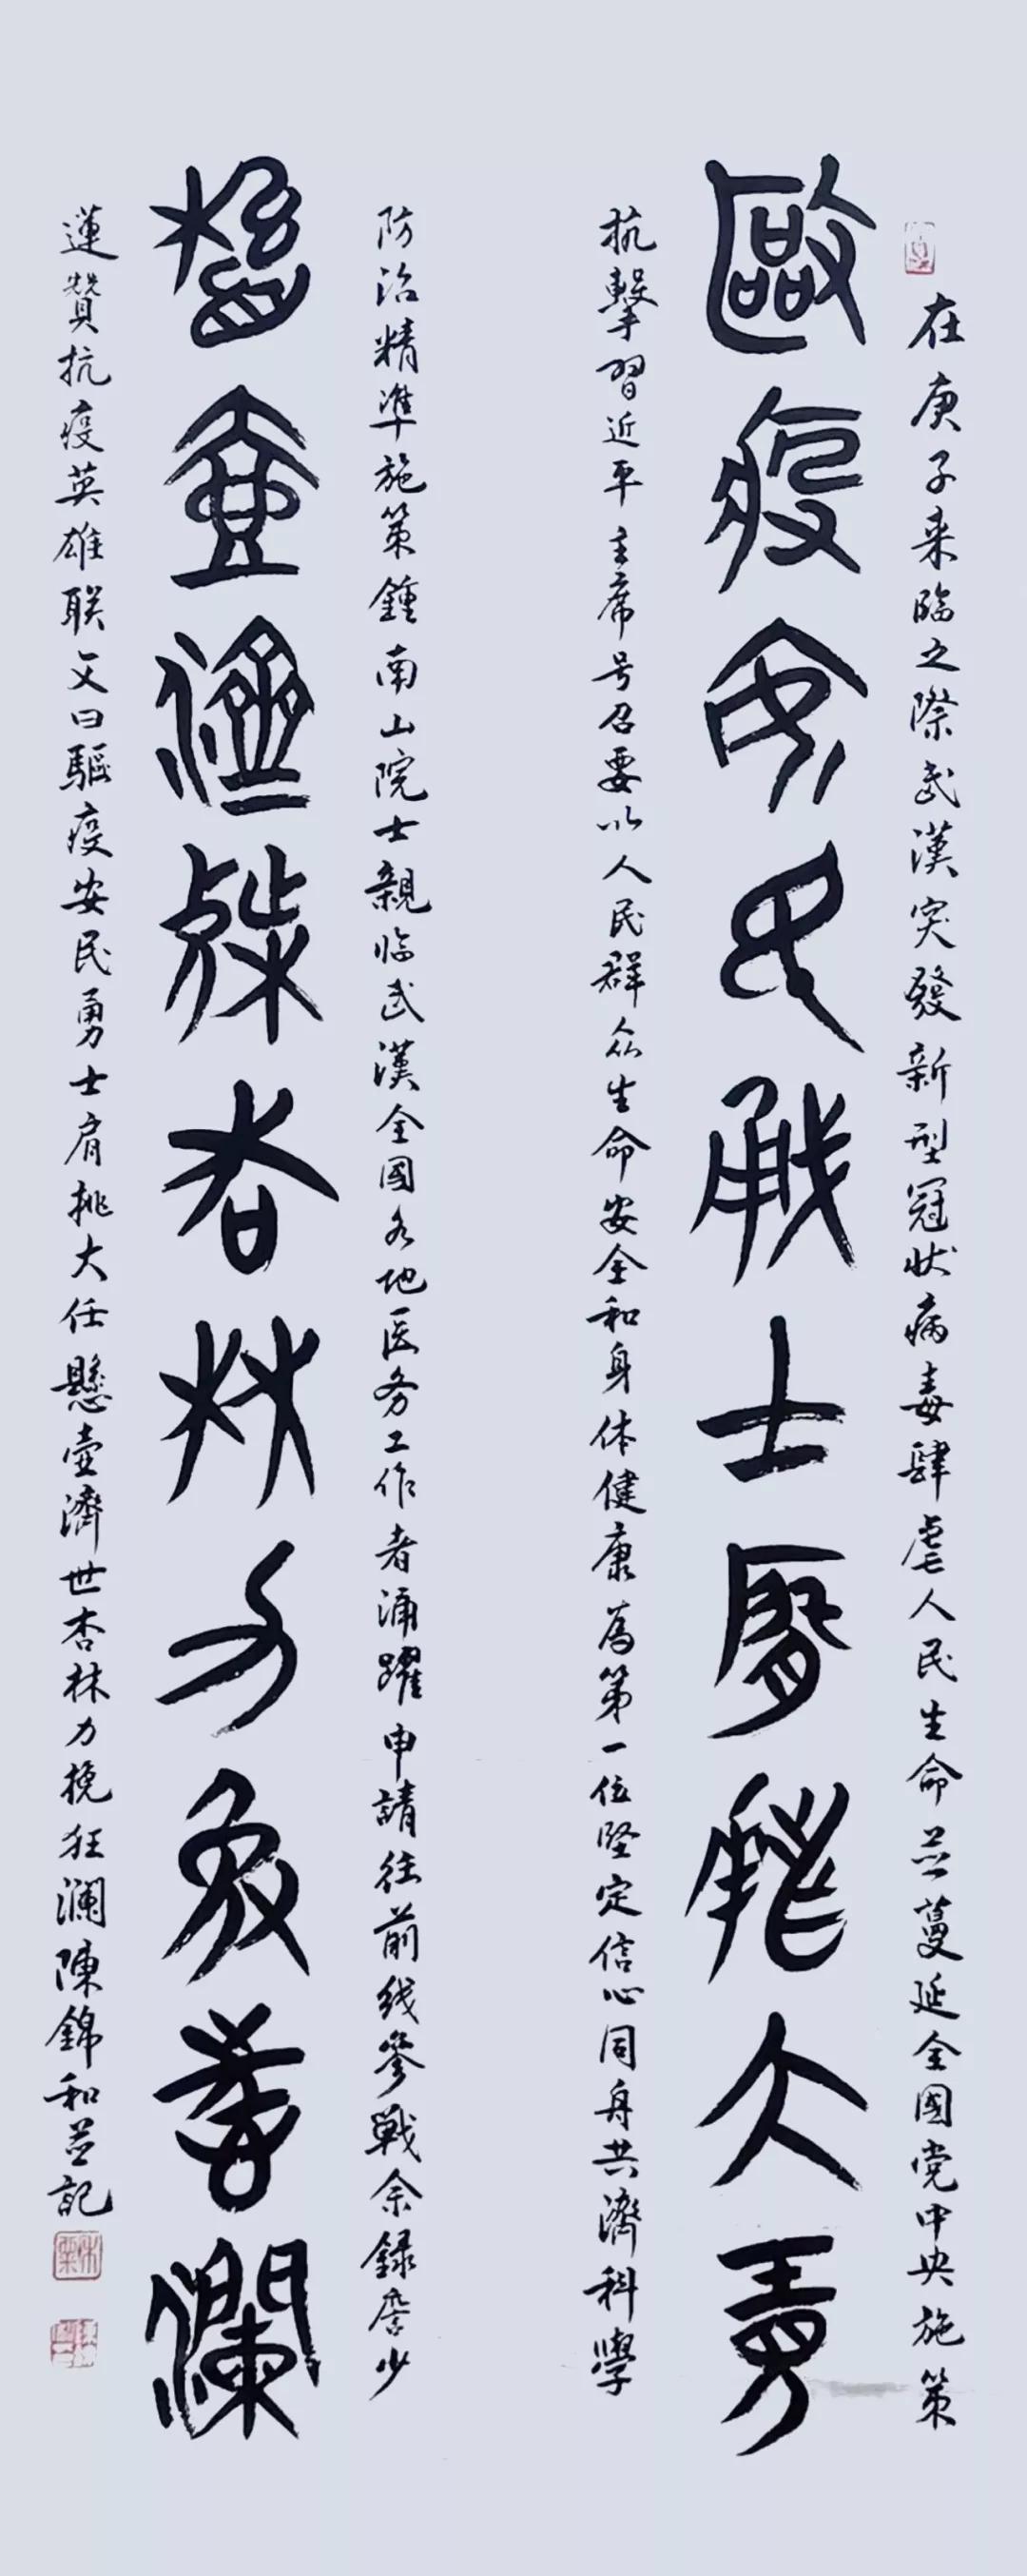 在庚子来臨之際武漢突發新型冠状病毒肆虐人民生命并蔓延全國党中央施策
驅疫安民勇士肩挑大任
抗擊習近平主席号召要以人民群众生命安全和身体健康為第一位坚定信心同舟共濟科學
防治精準施策鍾南山院士親临武漢全國各地医务工作者涌躍申請往前线參戰余録詹少
懸壺濟世杏林力挽狂瀾
蓮贊抗疫英雄联文曰驅疫安民勇士肩挑大任懸壺濟世杏林力挽狂瀾陳錦和并記